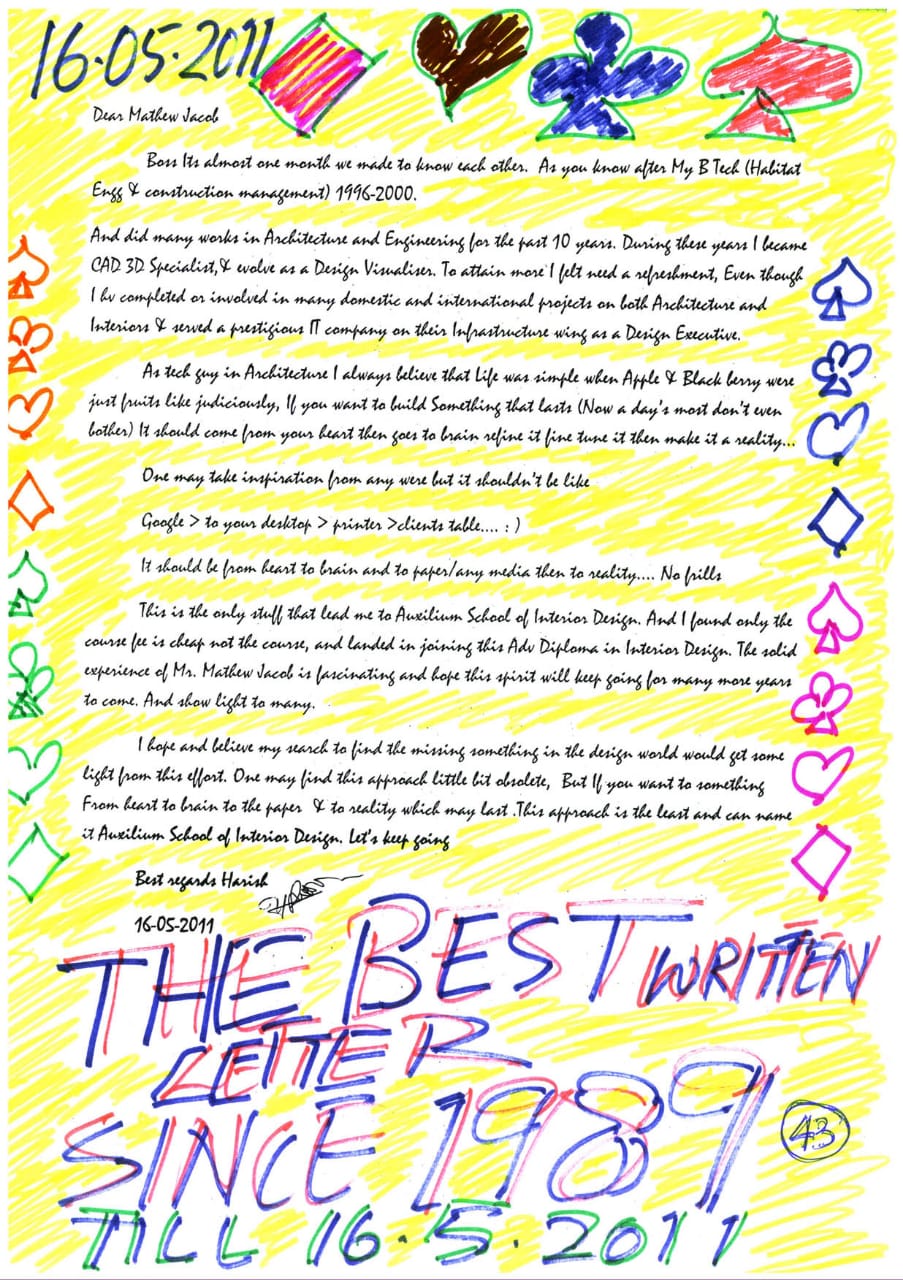 16.05.2011
Dear Mathew Jacob
Boss Its almost one month we made to know each other. As you know after My B Tech (Habitat
Engg & construction management) 1996-2000.
And did many works in Architecture and Engineering for the past 10 years. During these years I became
CAD 3D Specialist,& evolve as a Design Visualiser. To attain more I felt need a refreshment, Even though
I hv completed or involved in many domestic and international projects on both Architecture and
Interiors & served a prestigious IT company on their Infrastructure wing as a Design Executive.
As tech guy in Architecture I always believe that Life was simple when Apple & Black berry were
just fruits like judiciously, If you want to build Something that lasts (Now a day's most don't even
bother) It should come from your heart then goes to brain refine it fine tune it then make it a reality...
One may take inspiration from any were but it shouldn't be like
Google > to your desktop > printer >clients table.... : )
It should be from heart to brain and to paper/any media then to reality.... No frills
This is the only stuff that lead me to Auxilium School of Interior Design. And I found only the
course fee is cheap not the course, and landed in joining this Adv Diploma in Interior Design. The solid
experience of Mr. Mathew Jacob is fascinating and hope this spirit will keep going for many more years
to come. And show light to many.
I hope and believe my search to find the missing something in the design world would get some
light from this effort. One may find this approach little bit obsolete, But If you want to something
From heart to brain to the paper & to reality which may last .This approach is the least and can name
it Auxilium School of Interior Design. Let's keep going
Best regards Harish
16-05-2011
THE BEST WRITTEN
LETTER
SINCE 1989
43
TILL 16.5.2011